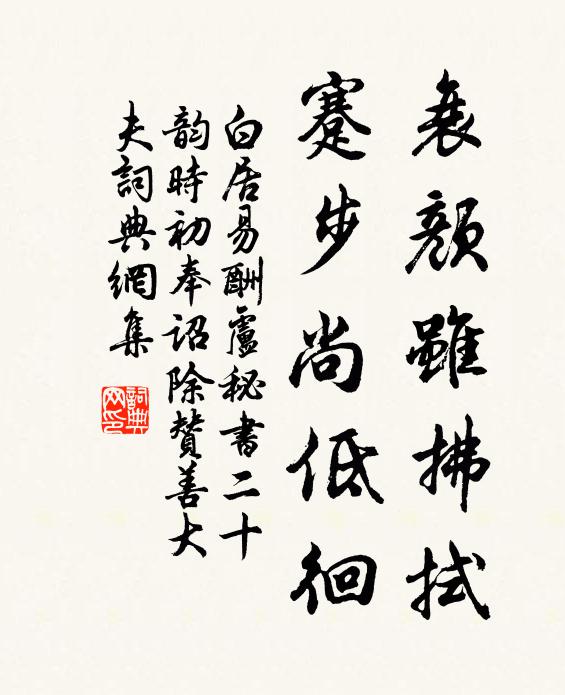 衰顏雖拂拭
蹇步尚低徊
白居易酬盧秘書二十
韵時初奉詔除贊善大
夫詞典網集
詞典
网印